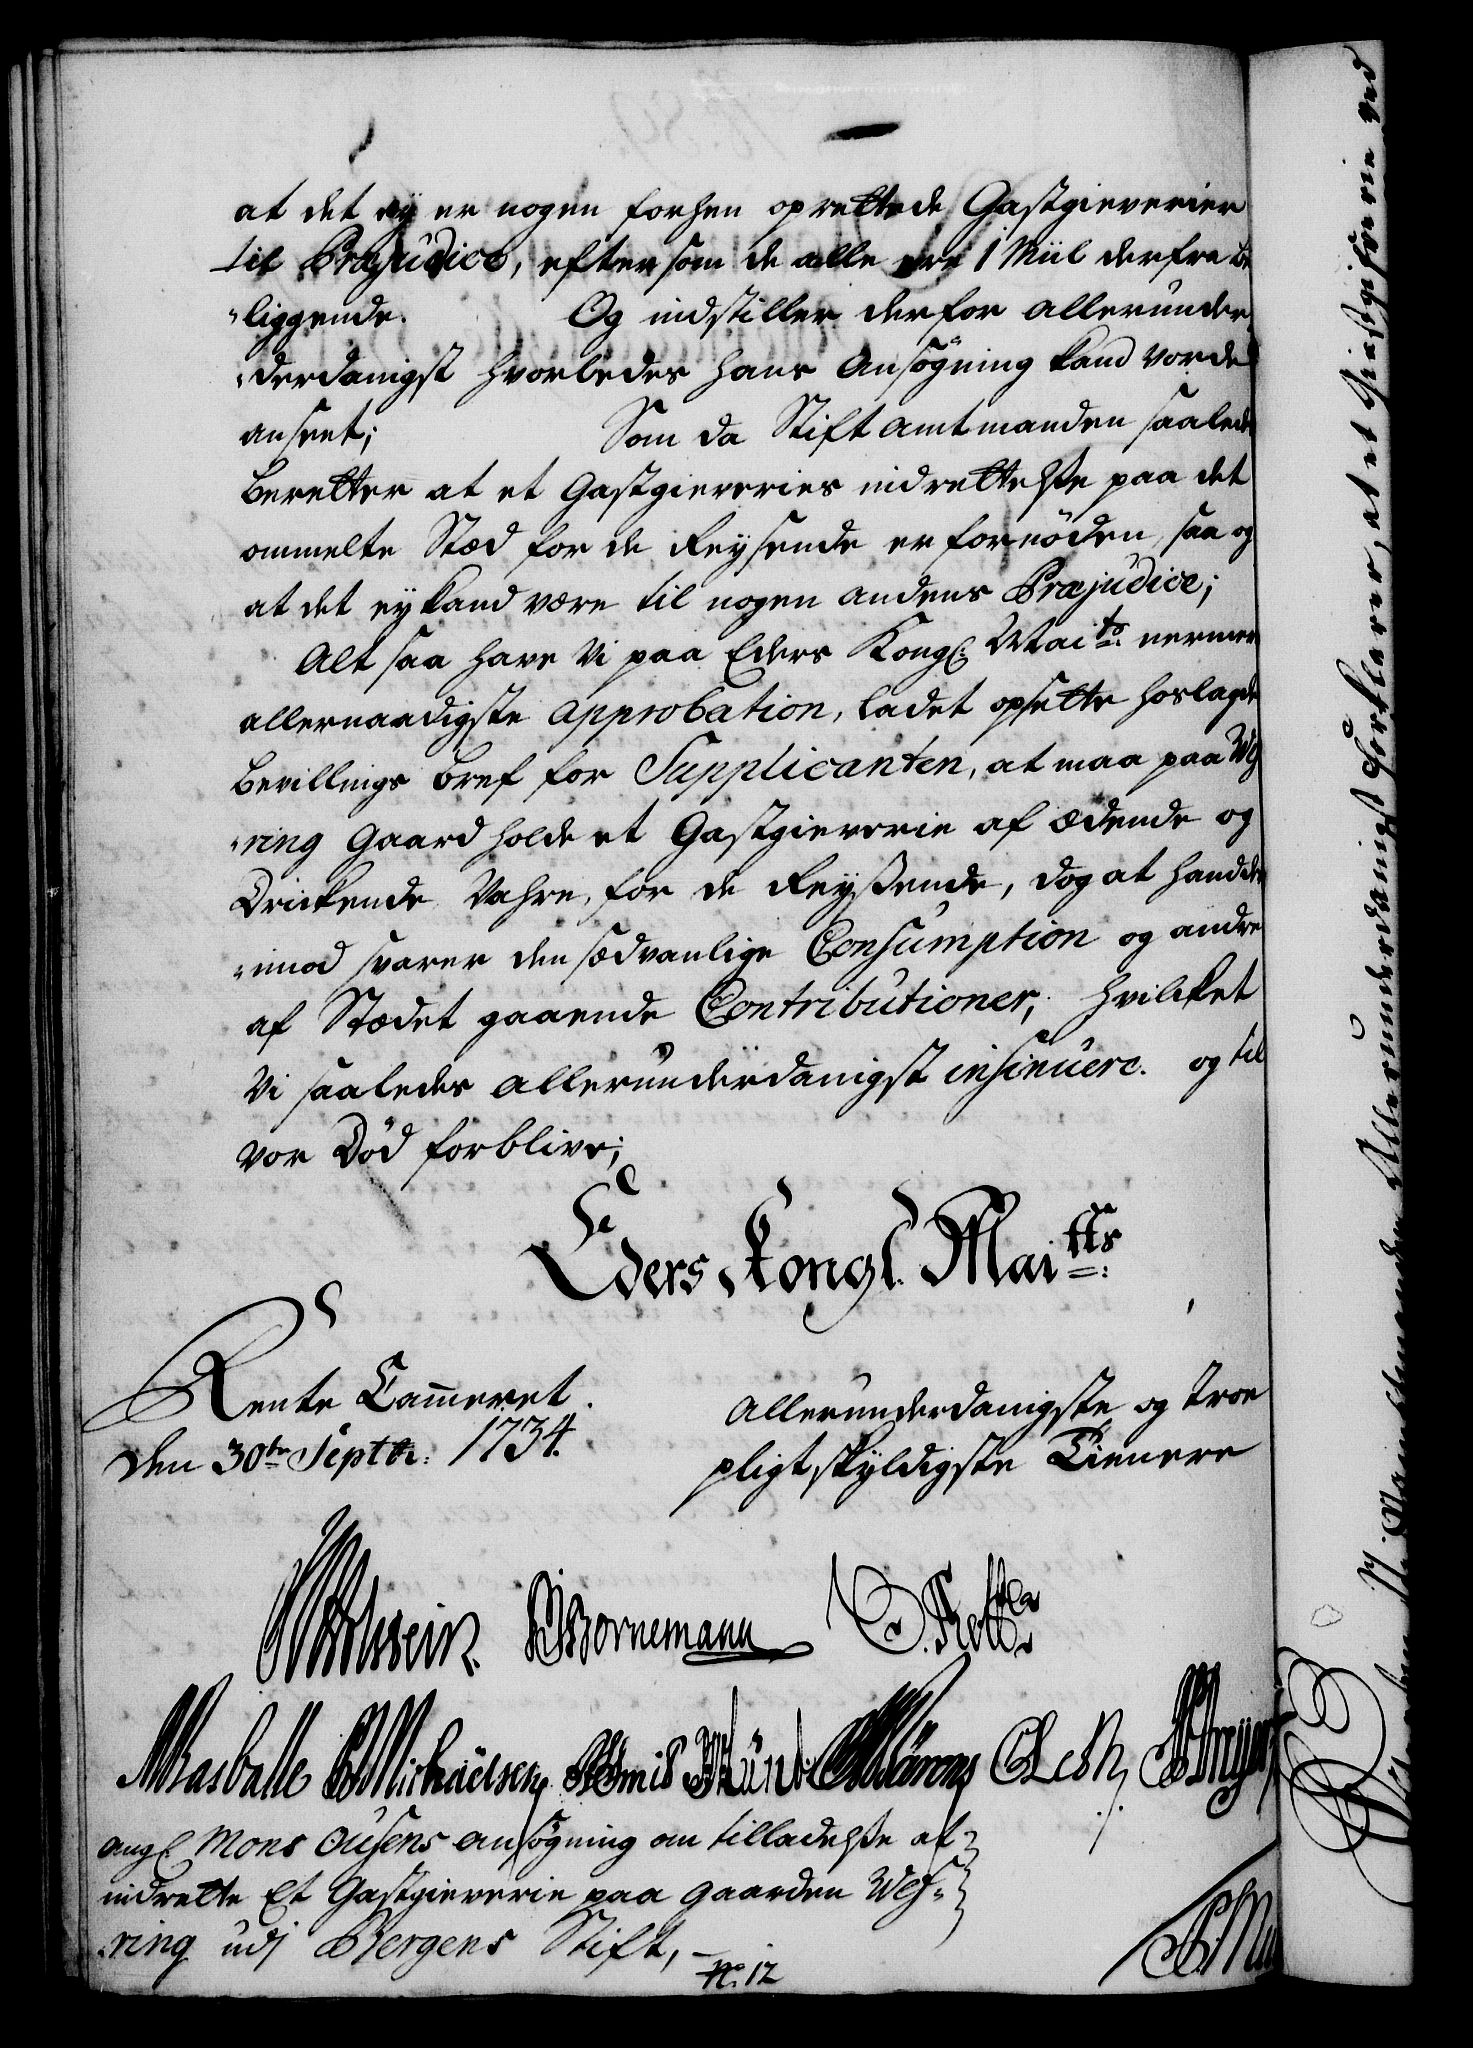 at det ey er nogen forhen oprettede Gastgieverier
til Præjudice, eftersom de alle ere 1 Miil derfra be
liggende. Og indstiller derfor allerunder
derdanigst hvorledes hans Ansøgning kand vorde
anseet; Som da Stift Amtmanden saalede
beretter at et Gastgieveries indrettelsße paa det
ommelte Stæd for de Reysende er fornöden, saa og
at det ey kand være til nogen andens Præjudice;
Alt saa have Vi paa Eders Kongl: Maits: nermer
allernaadigste approbation, ladet opsette hoslagde
bevillings bref for Supplicanten, at maa paa Weg
ring Gaard holde et Gastgieverie af ædende og
Drickende Vahre, for de Reyßende, dog at hand der
imod svarer den sædvanlige Consumption og andre
af Stædet gaaende Contributioner, hvilcket
Vi saaledes allerunderdanigst insinuere. og til
vor Död forblive;
Eders Kongl. Maitts:
Rente Cammeret.
den 30te Septbr: 1734.
Allerunderdanigste og troe
pligtskyldigste Tienere
Bornemann
Michaelsen
angl: Mons Ousens ansøgning om tilladelsße at
indrette Et Gastgieverie paa Gaarden Weg-
ring udj Bergens Stift,
No: 12
Stiftamtmanden Allerunderdanigst forklarer, at et Giestgiferie ved